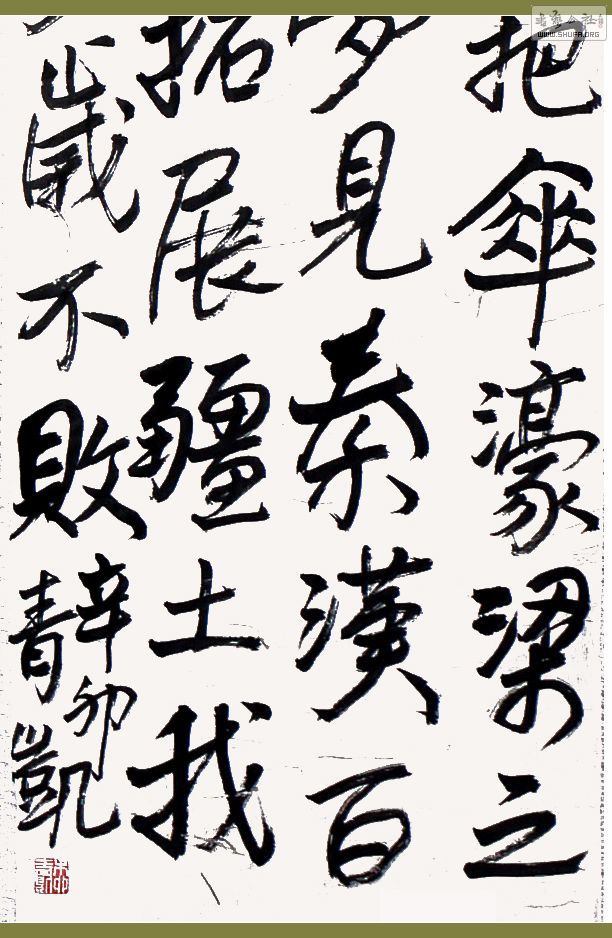 書藝公社
WWW.SHUFA.ORG
把傘濠梁之
見秦漢百
拓展疆土我
歲不敗
辛卯
青凱